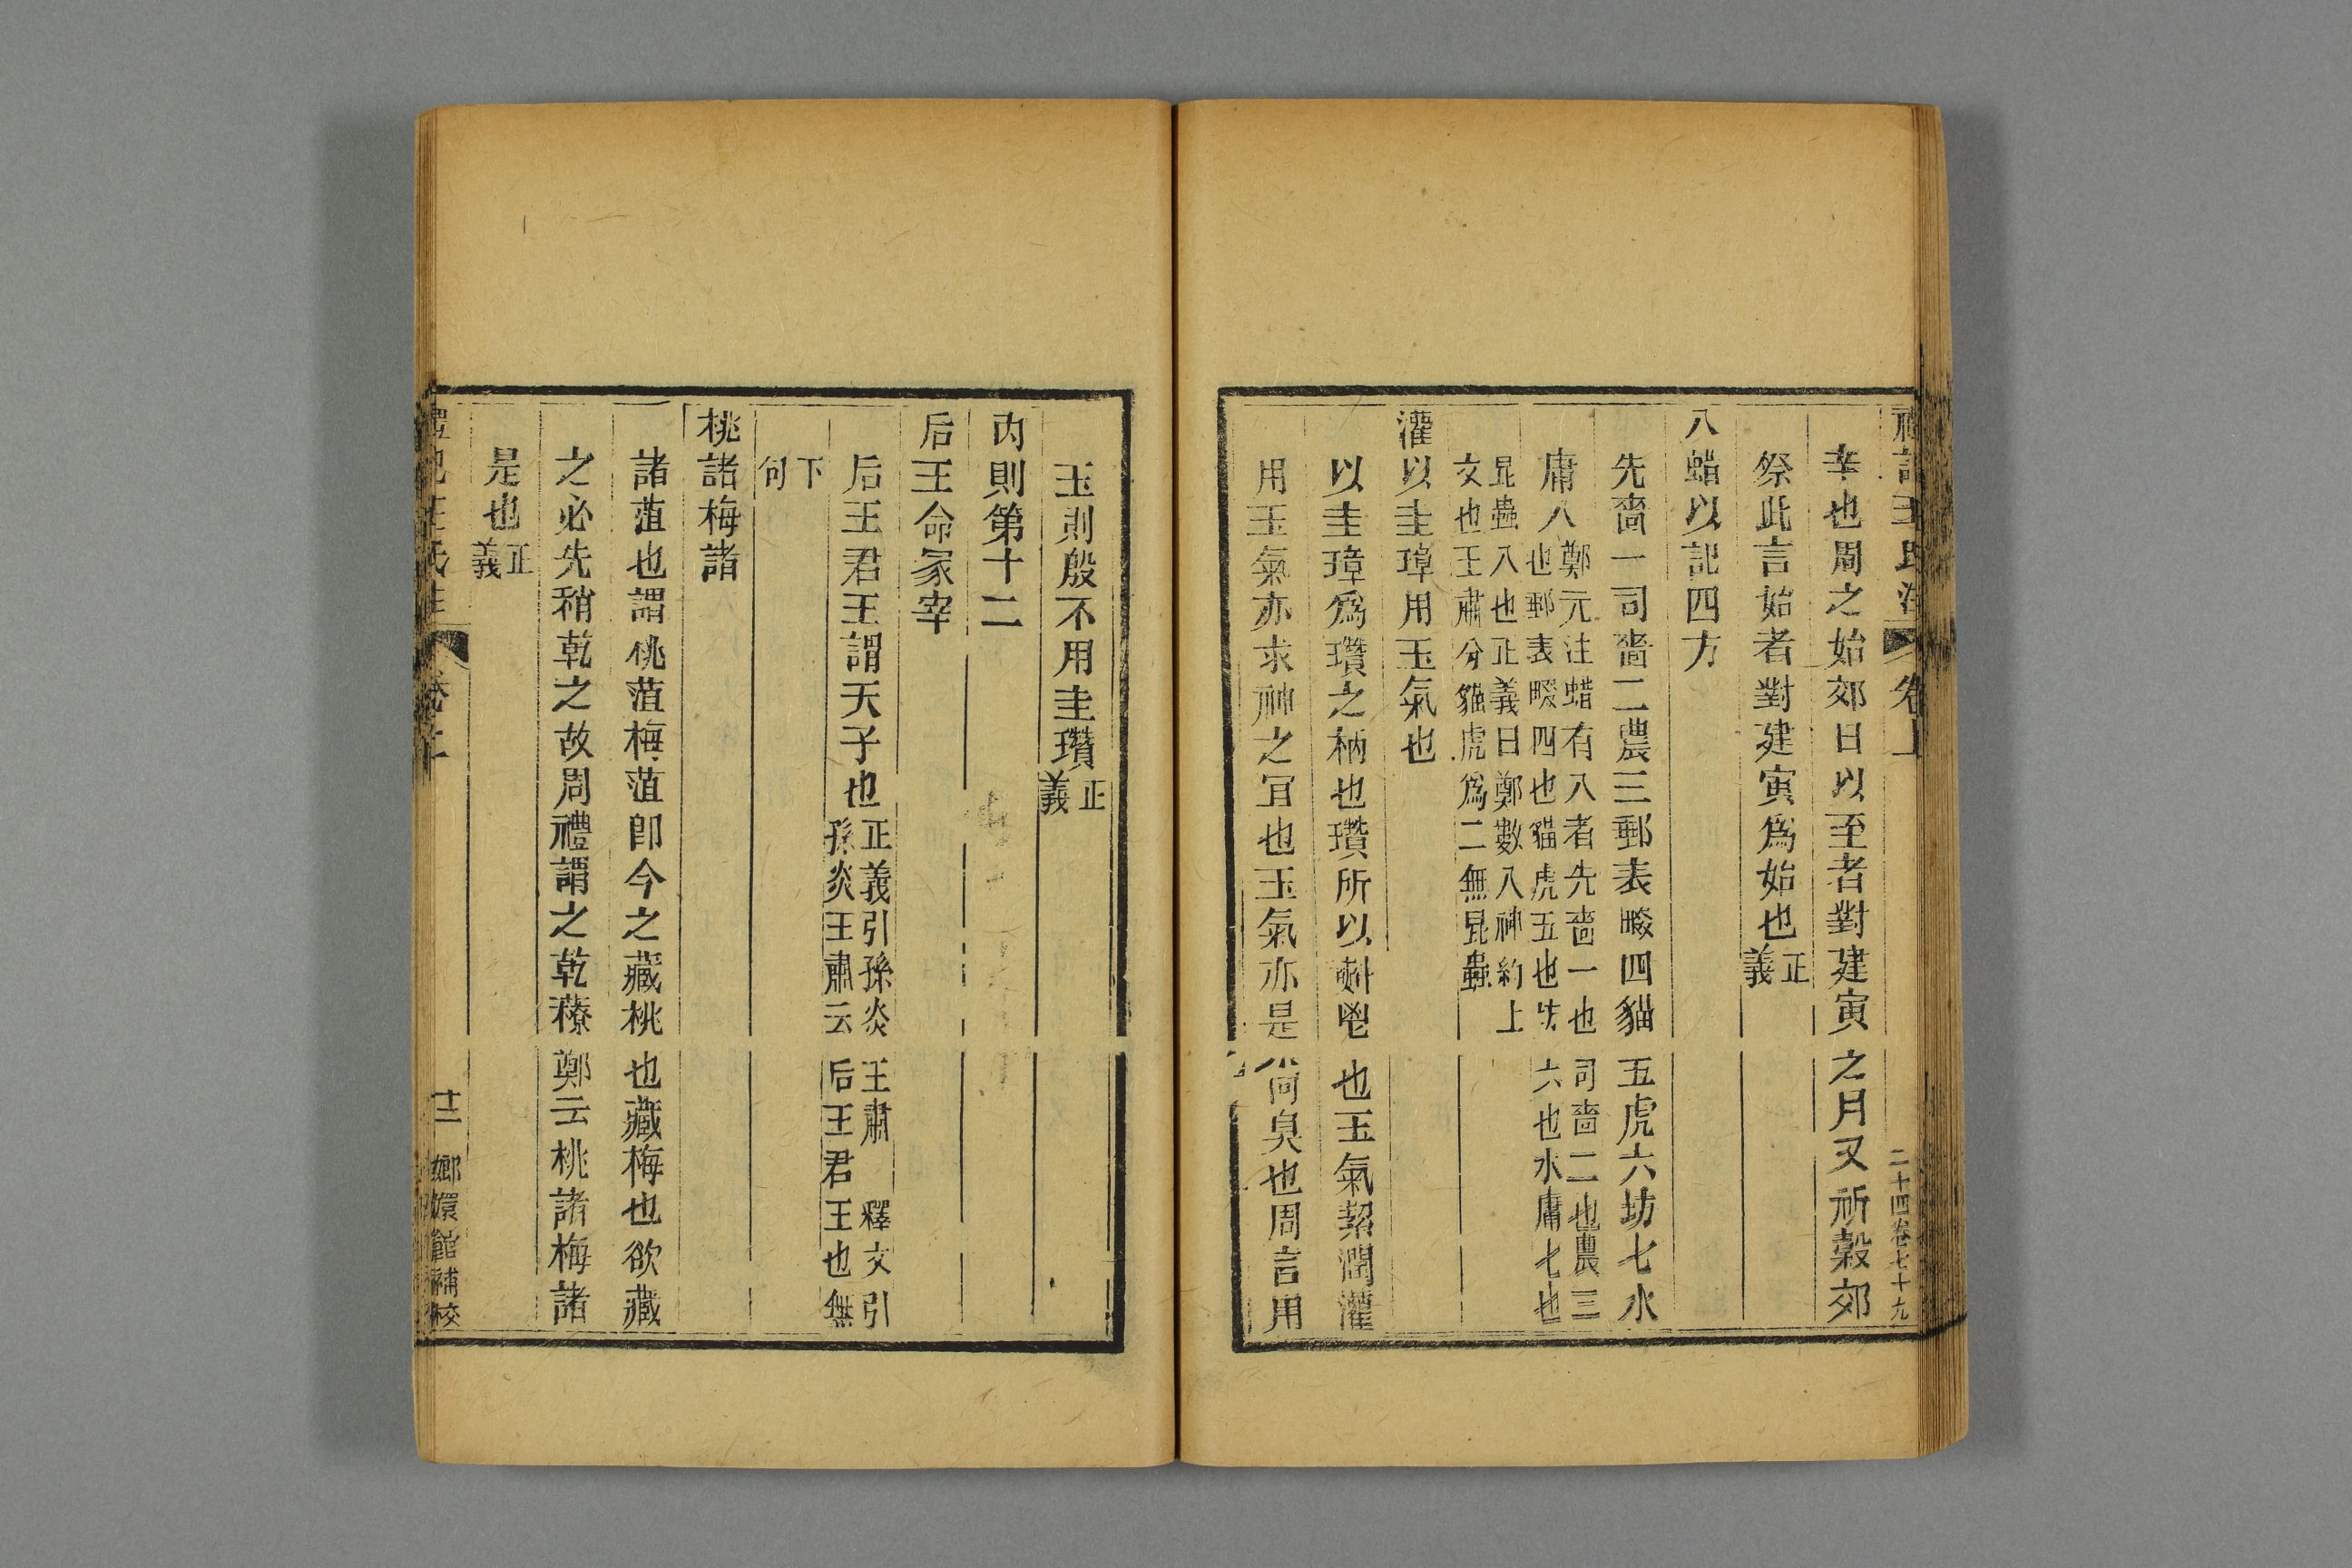 禮記王氏注 卷上 二十四卷七十九
辛也周之始郊日以至者對建寅之月又祈穀郊
祭此言始者對建寅爲始也正義
八蜡以記四方
先嗇一司嗇二農三郵表畷四貓五虎六坊七水
庸八鄭元注蜡有八者先嗇一也司嗇二也農三
也郵表畷四也貓虎五也坊六也水庸七也
昆蟲八也正義曰鄭數八神約上
文也王肅分貓虎爲二無昆蟲
灌以圭璋用玉氣也
以圭璋爲瓚之柄也瓚所以㪺鬯也玉氣絜潤灌
用玉氣亦求神之宜也玉氣亦是尚臭也周言用
玉則殷不用圭瓚正義
內則第十二
后王命冢宰
后王君王謂天子也正義引孫炎王肅 釋文引
孫炎王肅云后王君王也無
下句
桃諸梅諸
諸菹也謂桃菹梅菹卽今之藏桃也藏梅也欲藏
之必先稍乾之故周禮謂之乾䕩鄭云桃諸梅諸
是也正義
禮記王氏注 卷上 十二 嫏嬛館補校